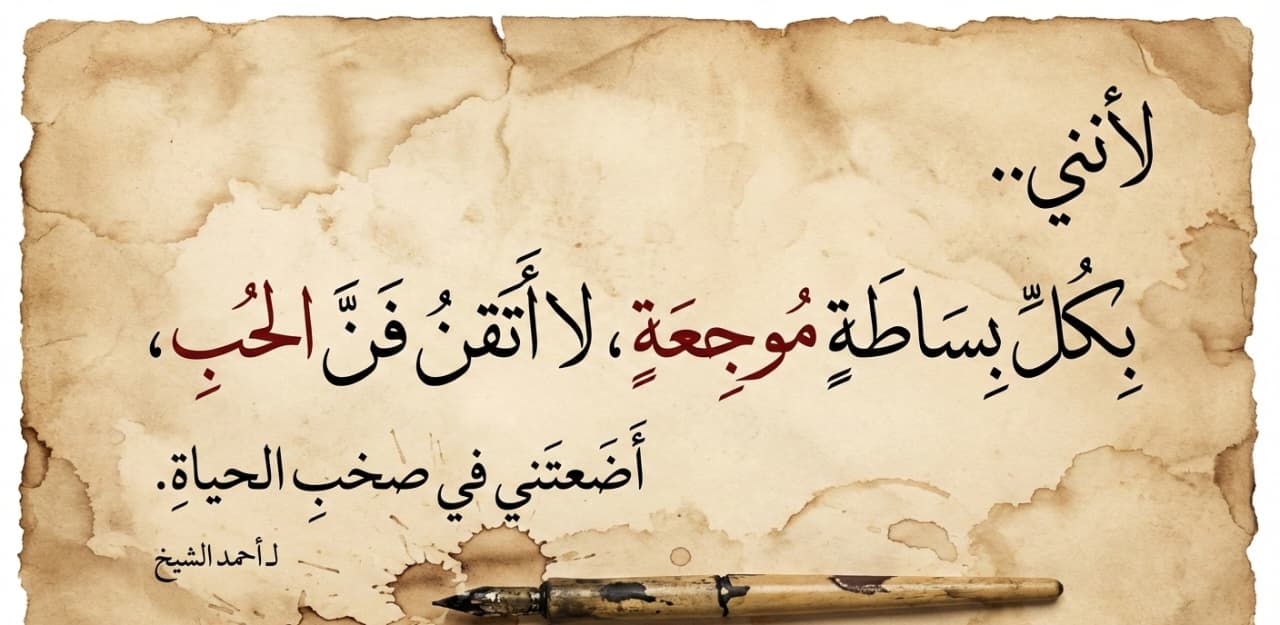 لأنني..
بِكُلِّ بِسَاطَةٍ مُوجِعَةٍ، لا أَتَقنُ فَنَّ الحُبِ،
أَضَعتَني في صخبِ الحياةِ.
لـ أحمد الشيخ